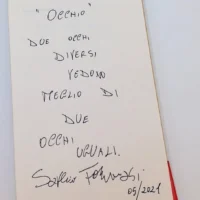 "OCCHIO"
DUE OCCHI
DIVERSI
VEDONO
MEGLIO DI
DUE
OCCHI
UGUALI.
05/2021